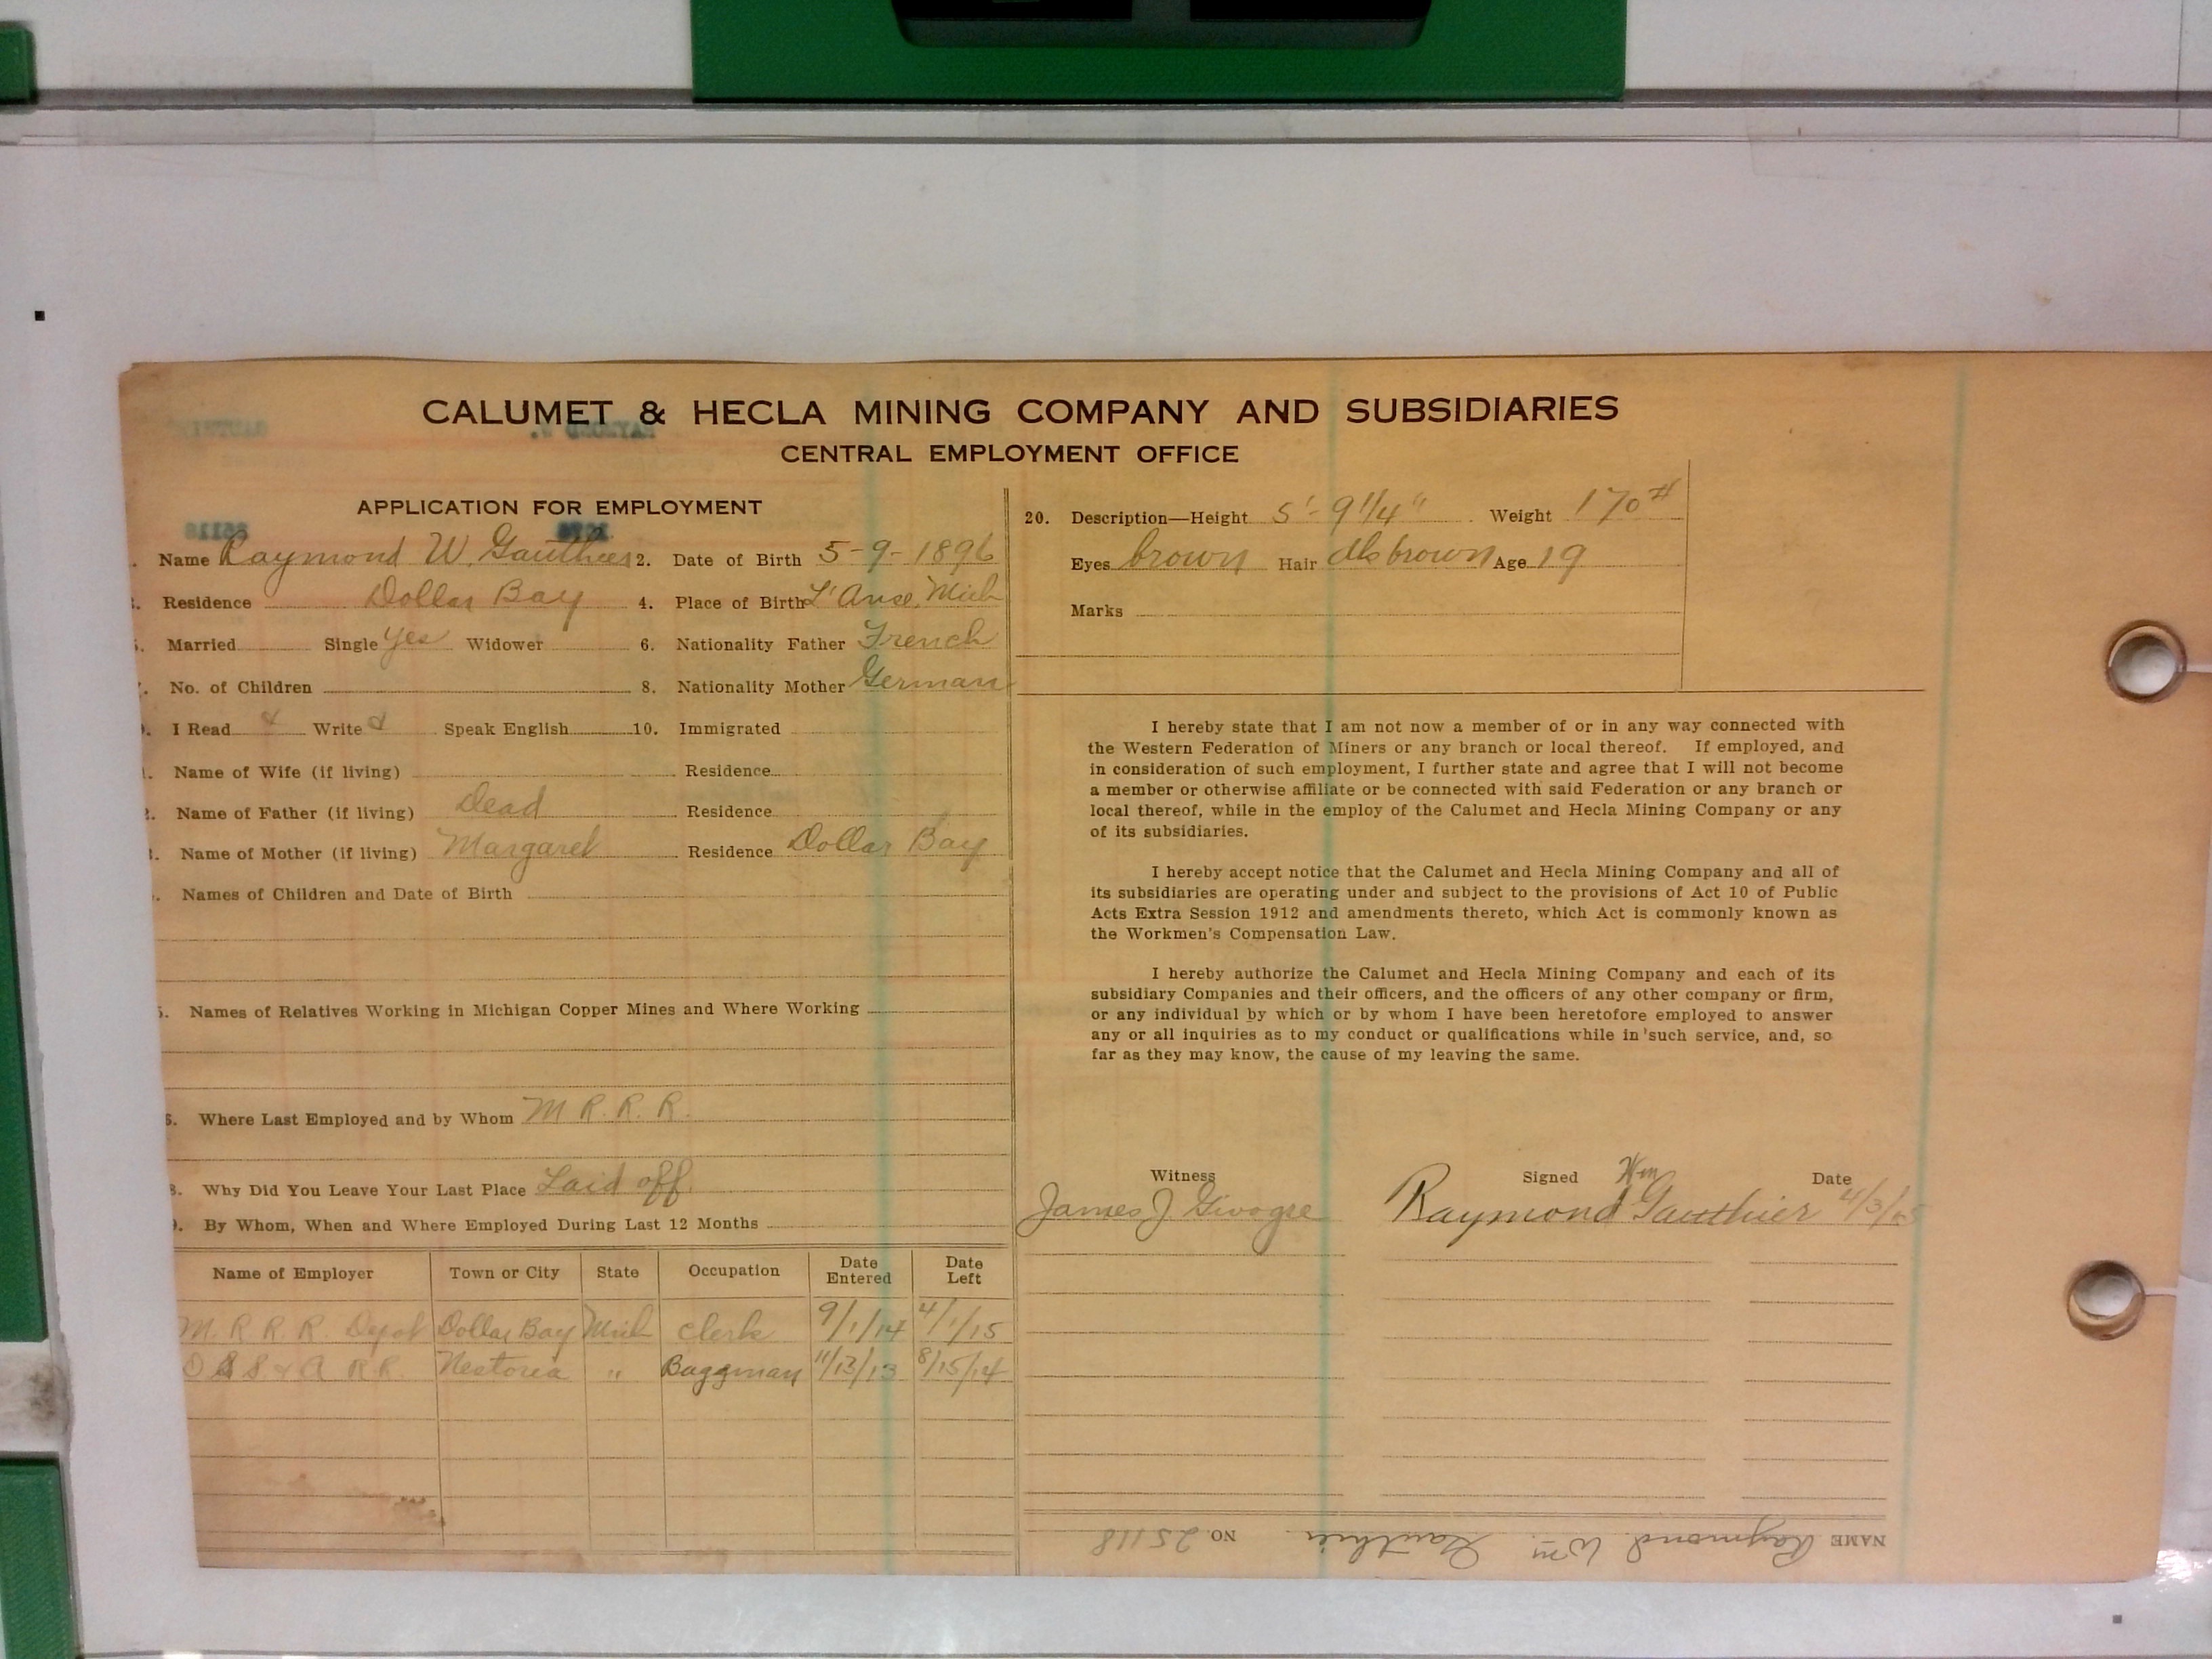 CALUMET & HECLA MINING COMPANY AND SUBSIDIARIES
CENTRAL EMPLOYMENT OFFICE
APPLICATION FOR EMPLOYMENT
Name Raymond W. Gauthier 2. Date of Birth 5-9-1896
Residence Dollar Bay 4. Place of Birth L'Anse, Mich
Married Single Yes Widower 6. Nationality Father French
No. of Children 8. Nationality Mother German
I Read & Write & Speak English 10. Immigrated
Name of Wife (if living) Residence
Name of Father (if living) Dead Residence
Name of Mother (if living) Margaret Residence Dollar Bay
Names of Children and Date of Birth
Names of Relatives Working in Michigan Copper Mines and Where Working
6. Where Last Employed and by Whom M R. R. R.
8. Why Did You Leave Your Last Place Laid off.
By Whom, When and Where Employed During Last 12 Months
Name of Employer Town or City State Occupation Date Entered Date Left
M. R R. R. Depot Dollar Bay Mich Clerk 9/1/14 4/1/15
D S S & A R.R. Nestoria " Baggman 11/13/13 8/15/14
20. Description—Height 5'-9 1/4" Weight 170#
Eyes brown Hair dk brown Age 19
Marks
I hereby state that I am not now a member of or in any way connected with
the Western Federation of Miners or any branch or local thereof. If employed, and
in consideration of such employment, I further state and agree that I will not become
a member or otherwise affiliate or be connected with said Federation or any branch or
local thereof, while in the employ of the Calumet and Hecla Mining Company or any
of its subsidiaries.
I hereby accept notice that the Calumet and Hecla Mining Company and all of
its subsidiaries are operating under and subject to the provisions of Act 10 of Public
Acts Extra Session 1912 and amendments thereto, which Act is commonly known as
the Workmen's Compensation Law.
I hereby authorize the Calumet and Hecla Mining Company and each of its
subsidiary Companies and their officers, and the officers of any other company or firm,
or any individual by which or by whom I have been heretofore employed to answer
any or all inquiries as to my conduct or qualifications while in such service, and, so
far as they may know, the cause of my leaving the same.
Witness Signed Date
James J Raymond Wm Gauthier 4/3/15
NAME Raymond Wm. Gauthier NO. 25118